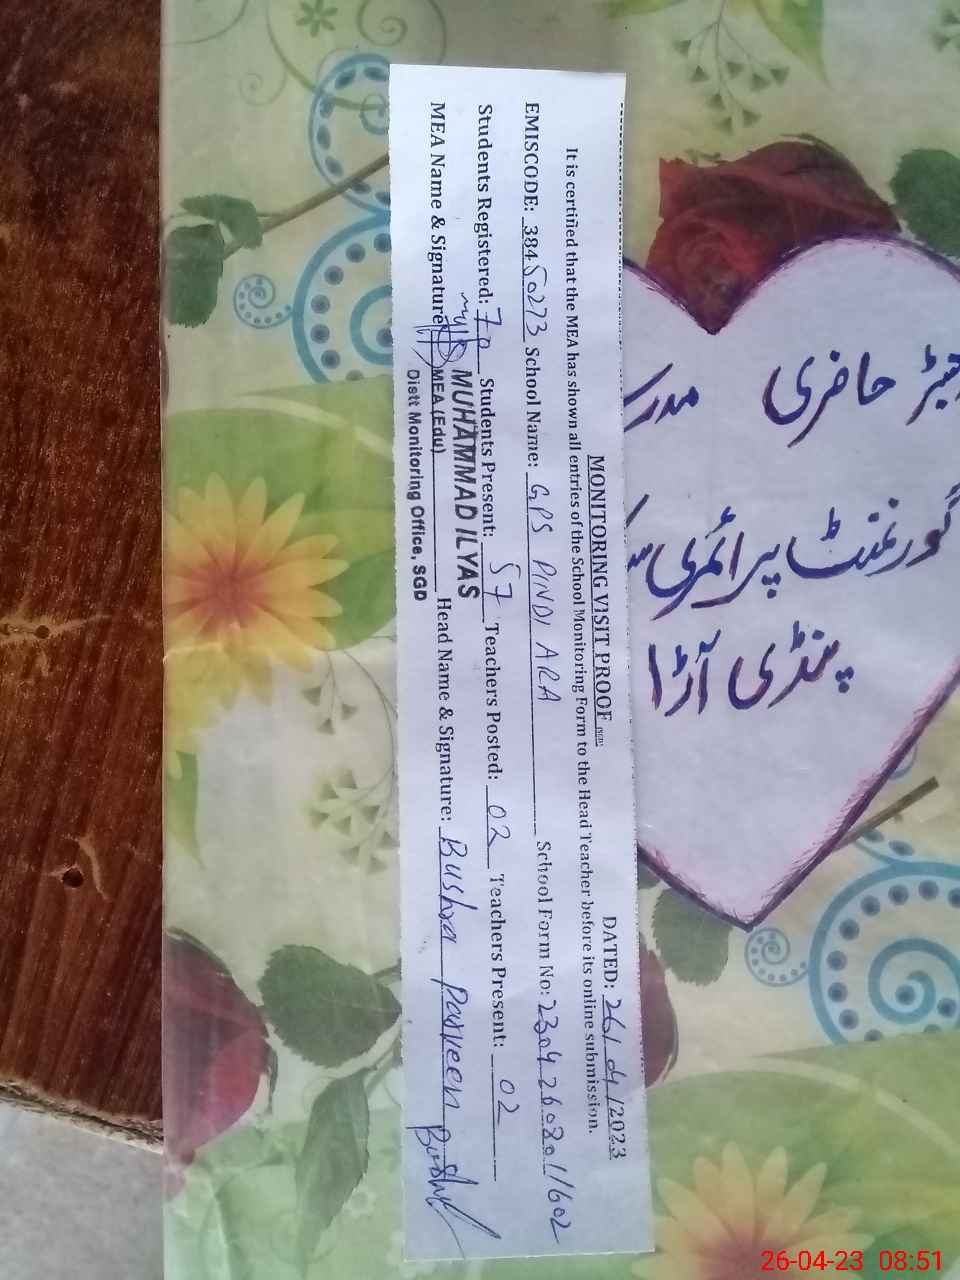 MONITORING VISIT PROOF (SGD) DATED: 26/04/2023
It is certified that the MEA has shown all entries of the School Monitoring Form to the Head Teacher before its online submission.
EMISCODE: 38450273 School Name: GPS PINDI ARA School Form No: 23042608011602
Students Registered: 70 Students Present: 57 Teachers Posted: 02 Teachers Present: 02
MUHAMMAD ILYAS
MEA Name & Signature: Head Name & Signature: Bushra Parveen
MEA (Edu)
Distt Monitoring Office, SGD
حاضری
گورنمنٹ پرائمری
پنڈی آڑا
26-04-23 08:51